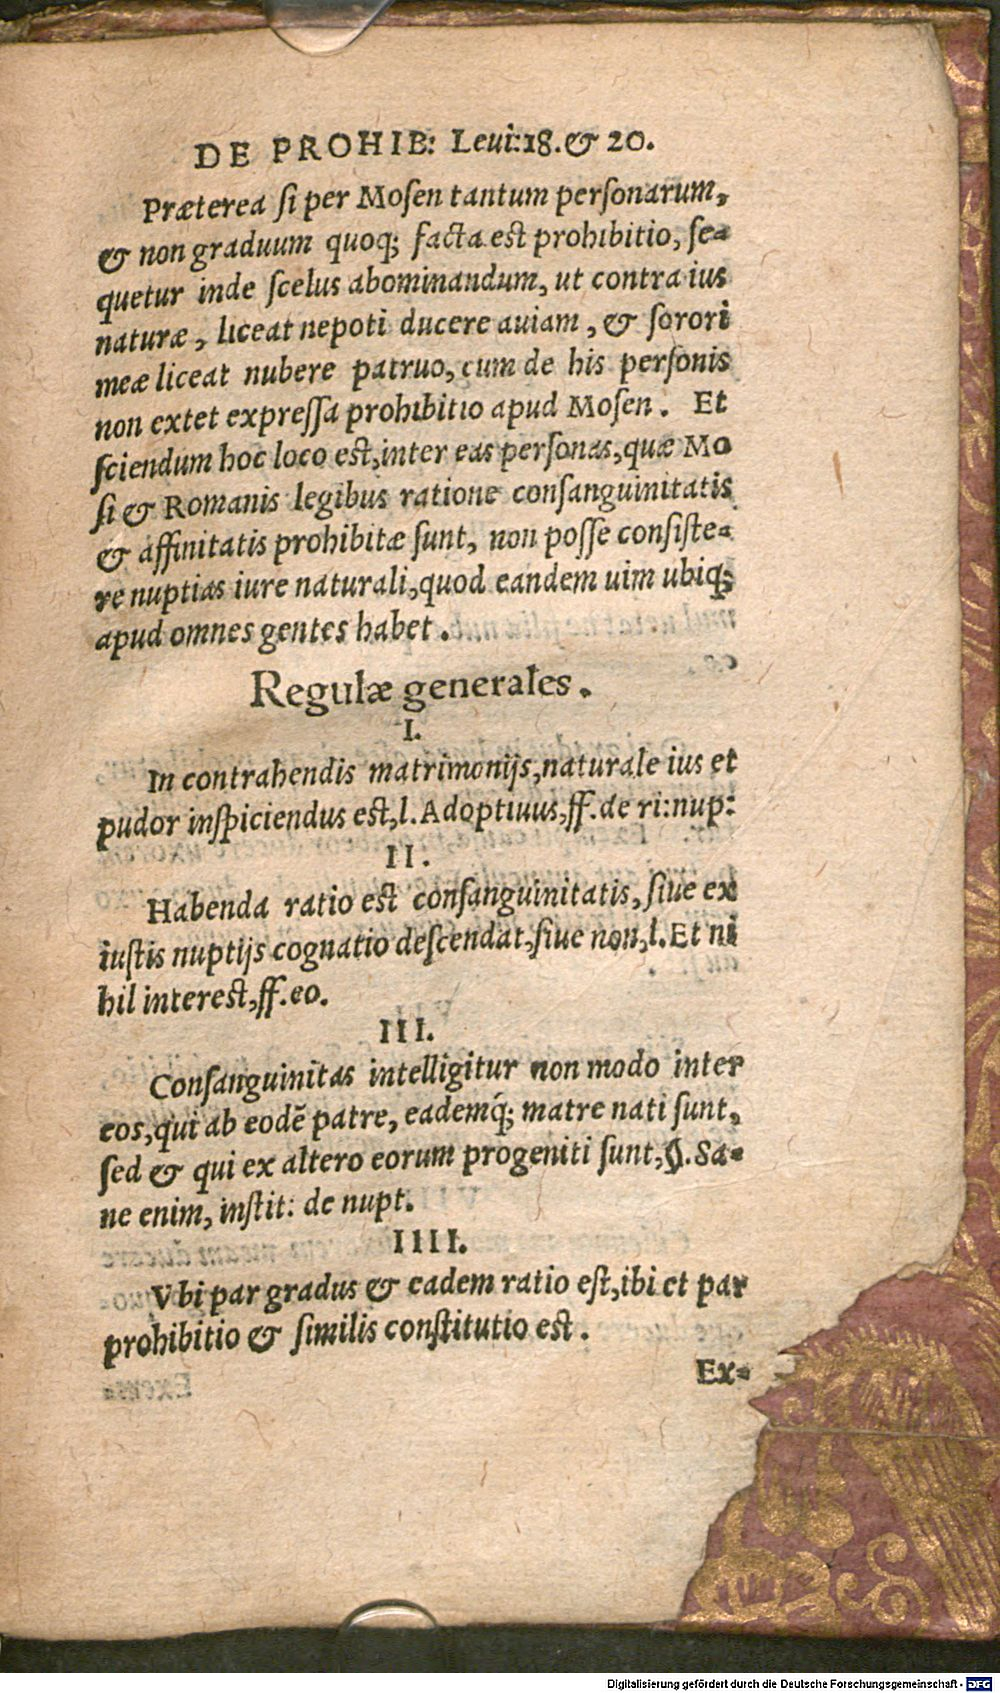 DE PROHIB: Levi:18. & 20.
Præterea ſi per Moſen tantum perſonarum,
& non graduum quoq; facta est prohibitio, ſe-
quetur inde ſcelus abominandum, ut contra ius
naturæ, liceat nepoti ducere auiam, & ſorori
meæ liceat nubere patruo, cum de his perſonis
non extet expreſſa prohibitio apud Moſen. Et
ſciendum hoc loco est, inter eas perſonas, quæ Mo
ſi & Romanis legibus ratione conſanguinitatis
& affinitatis prohibitæ ſunt, non poſſe conſiſte-
re nuptias iure naturali, quod eandem uim ubiq;
apud omnes gentes habet.
Regulæ generales.
I.
In contrahendis matrimonijs, naturale ius et
pudor inſpiciendus est, l. Adoptiuus, ff. de ri: nup:
II.
Habenda ratio est conſanguinitatis, ſiue ex
iuſtis nuptijs cognatio deſcendat, ſiue non, l. Et ni
hil intereſt, ff. eo.
III.
Conſanguinitas intelligitur non modo inter
eos, qui ab eodē patre, eademq́; matre nati ſunt,
ſed & qui ex altero eorum progeniti ſunt, §. Sa-
ne enim, inſtit: de nupt.
IIII.
Vbi par gradus & eadem ratio eſt, ibi et par
prohibitio & ſimilis conſtitutio est.
Ex-
Digitalisierung gefördert durch die Deutsche Forschungsgemeinschaft - DFG